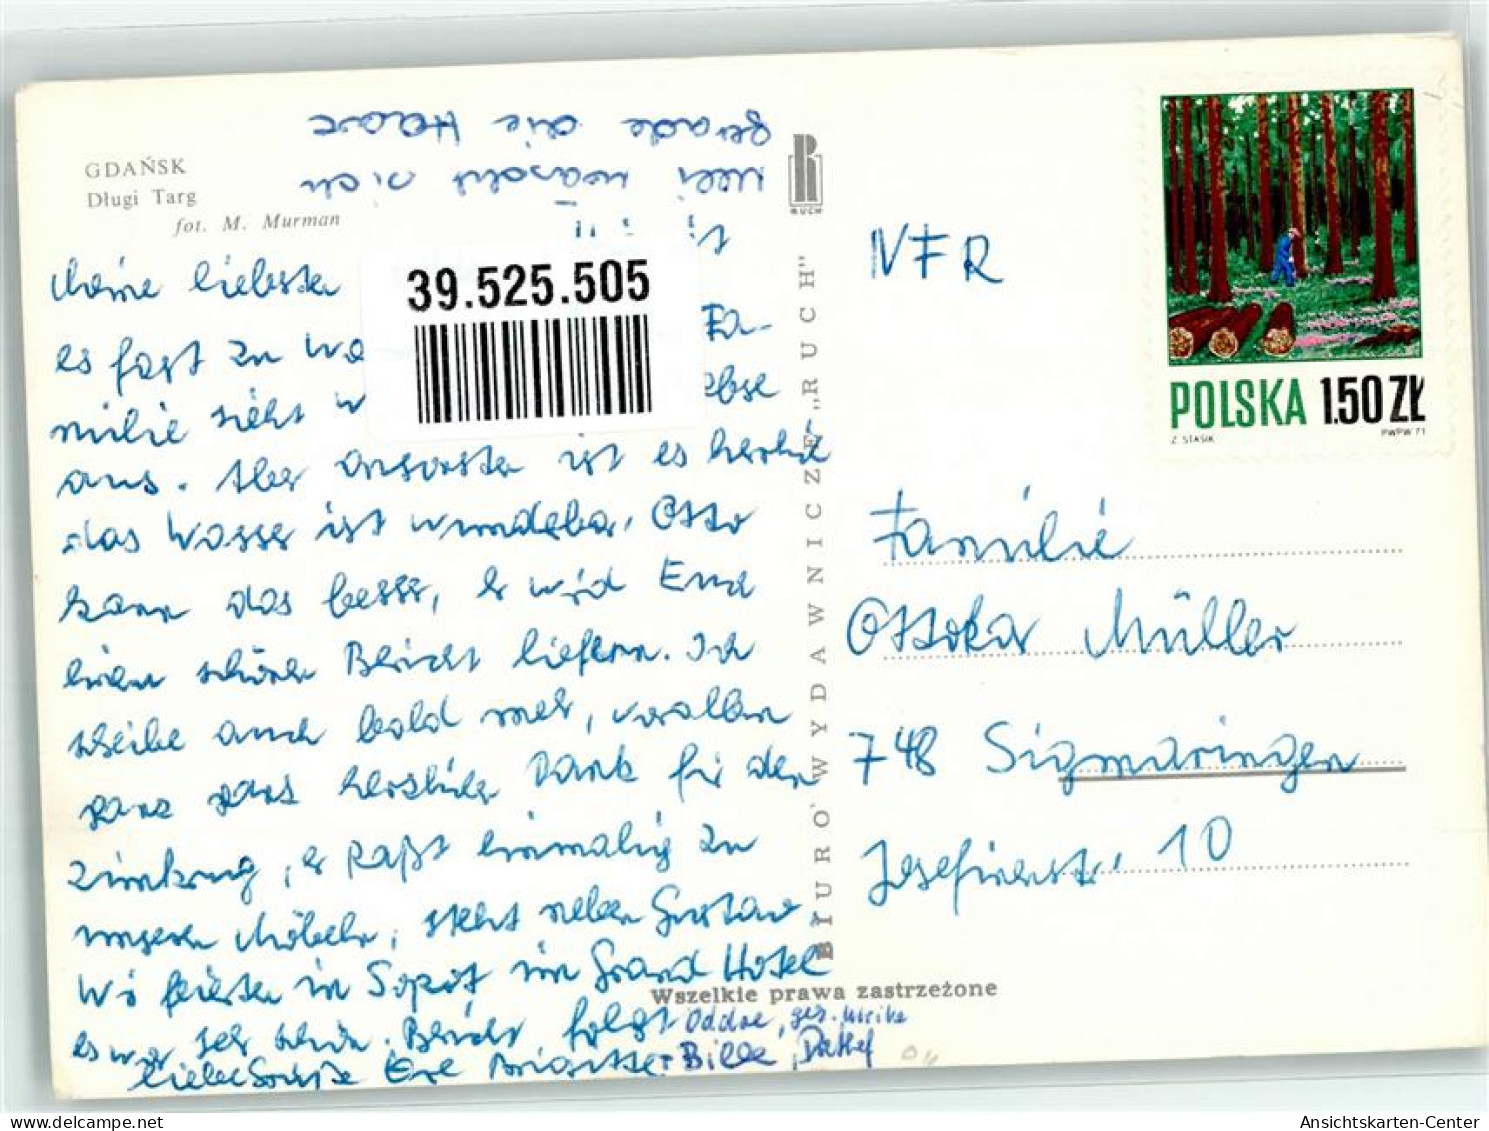 GDAŃSK
Długi Targ
fot. M. Murman
gerade die Haare
Ulli wäscht sich
Meine liebsten
39.525.505
es fast zu wa Fa-
milie sieht w ebse
aus. Aber ansonsten ist es herrlich
das Wasser ist wunderbar, Otto
kann das besser, er wird Euch
einen schönen Bericht liefern. Ich
schreibe auch bald mehr, vorallem
ganz ganz herzlichen Dank für den
, er paßt einmalig zu
unseren Möbeln, steht neben Gustav
Wir feierten in Sopot im Grand Hotel
es war sehr schön. Bericht folgt
liebe Grüße Eure Brigitte
Oddoe, ges. Ulrike
+ Bille, Detlef
RUCH
BIURO WYDAWNICZE „RUCH"
Wszelkie prawa zastrzeżone
NFR
POLSKA 1.50 ZŁ
Z. STASIK PWPW 71
Familie
Ottokar Müller
748 Sigmaringen
Josefinenstr. 10
Ansichtskarten-Center